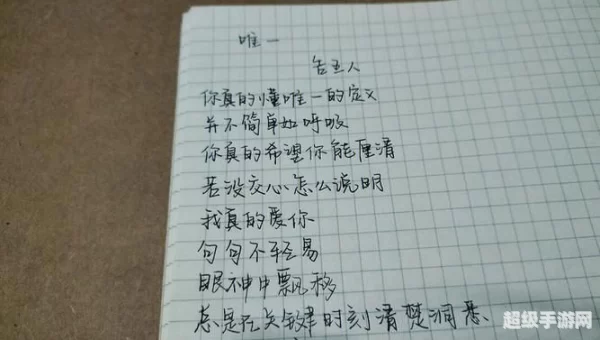 唯一
告五人
你真的懂唯一的定义
并不简单如呼吸
你真的希望你能厘清
若没交心怎么说明
我真的爱你
句句不轻易
眼神中飘移
总是在关键时刻清楚洞悉
超级手游网